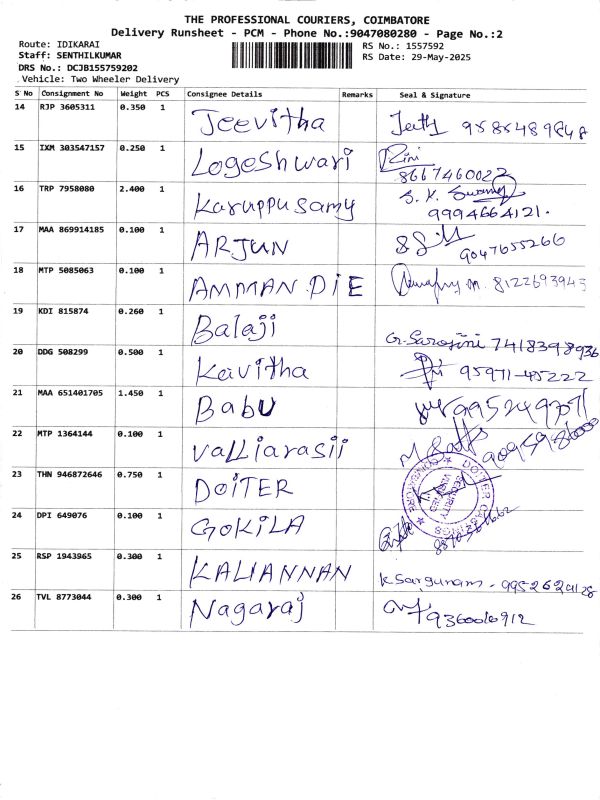 THE PROFESSIONAL COURIERS, COIMBATORE
Delivery Runsheet - PCM - Phone No.:9047080280 - Page No.:2
Route: IDIKARAI
RS No.: 1557592
Staff: SENTHILKUMAR
RS Date: 29-May-2025
DRS No.: DCJB155759202
Vehicle: Two Wheeler Delivery
S No Consignment No Weight PCS Consignee Details Remarks Seal & Signature
14 RJP 3605311 0.350 1 Jeevitha Jeeth 9585489848
15 IXM 303547157 0.250 1 Logeshwari Rini
8667460022
16 TRP 7958080 2.400 1 Karuppu samy S. K. Swamy
9994664121.
17 MAA 869914185 0.100 1 ARJUN 9047655266
18 MTP 5085063 0.100 1 AMMAN DIE 8122693945
19 KDI 815874 0.260 1 Balaji G. Sarojini 7418398936
20 DDG 508299 0.500 1 Kavitha 95971-45222
21 MAA 651401705 1.450 1 Babu
22 MTP 1364144 0.100 1 valliarasii
23 THN 946872646 0.750 1 DOITER
DOITER CASTINGS
COIMBATORE
SECURITY
24 DPI 649076 0.100 1 GOKILA
25 RSP 1943965 0.300 1 KALIANNAN K Sargunam -
26 TVL 8773044 0.300 1 Nagaraj 9360016912